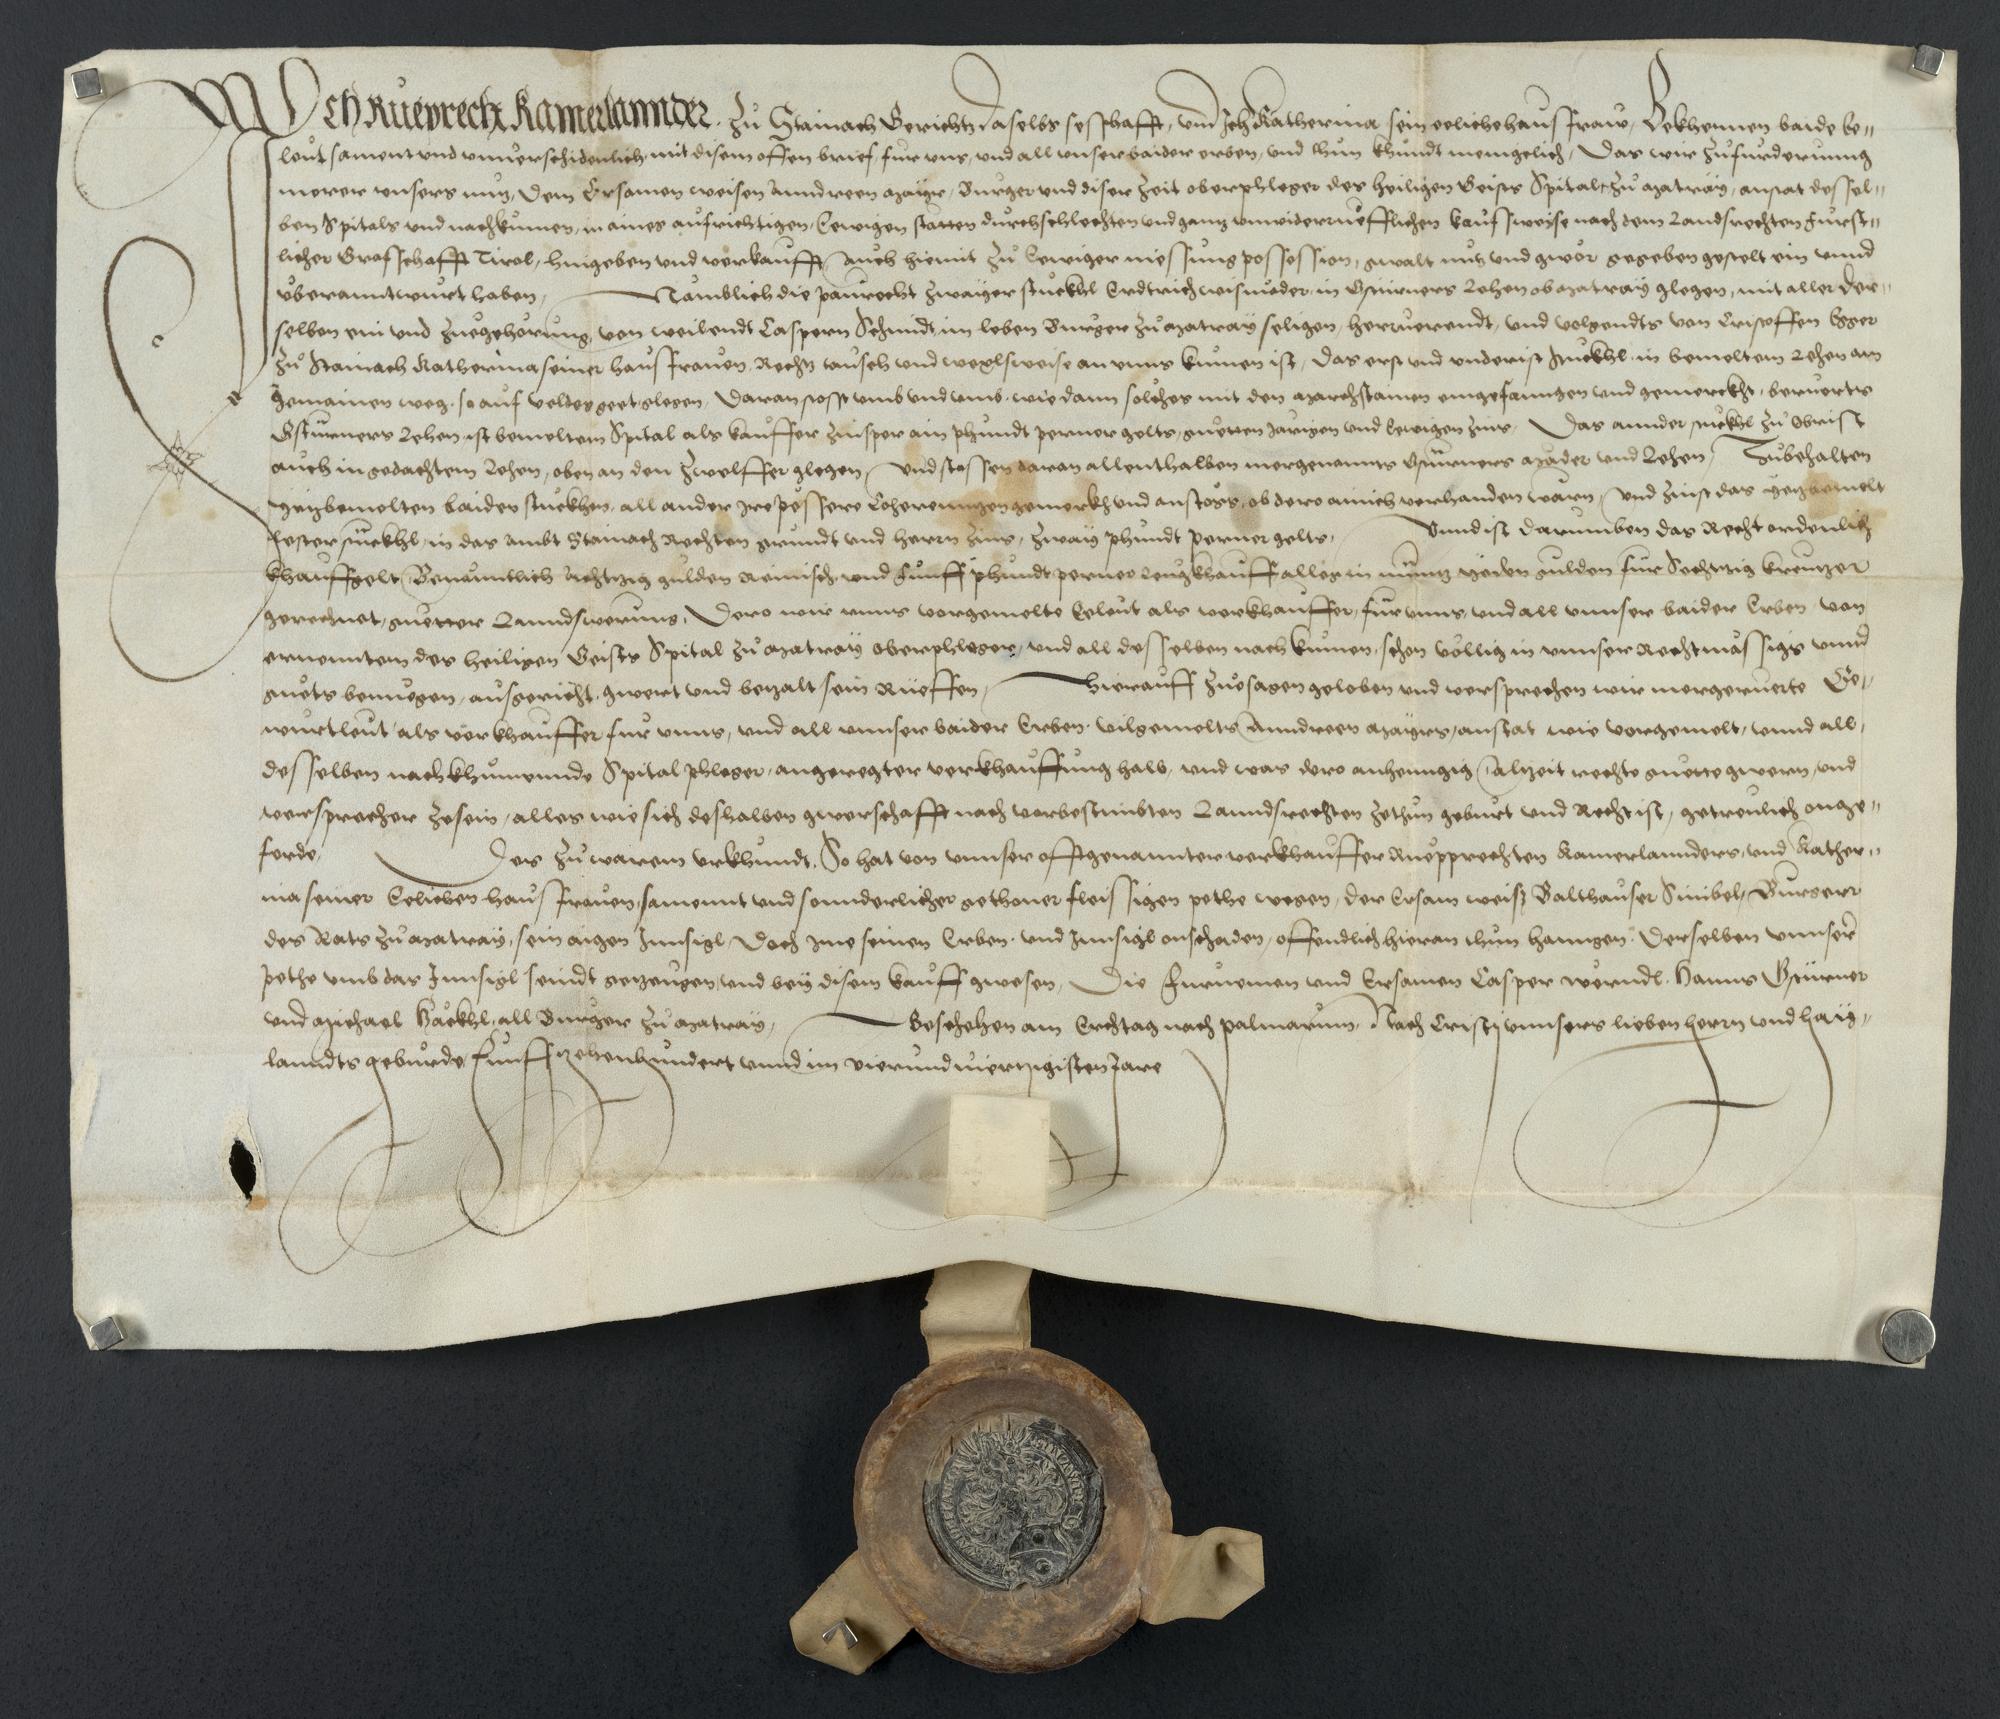 Ich Rueprecht Kamerlannder. zů Stainach Gerichtz daselbs sesshafft, vnd Ich Katherina sein eeliche hausfraw, Bekhennen baide Ee„
leut sament vnd vnnerschidenlich, mit disem offen brief, fur vns, vnd all vnser baider erben, vnd thun khundt menigelich, Das wir zu furderunng
merer vnsers nutz, dem Ersamen weisen Anndreen Mayr, Burger vnd diser zeit oberphleger des heiligen Geists Spitals zů Matray, anstat dessel„
ben Spitals vnd nachkumen, in aines aufrichtigen, Eewigen statten durchschlechten vnd gantz vnwiderrueefflichen kaufsweise nach dem Landsrechten Furst„
licher Grafschafft Tirol, hingeben vnd verkaufft, Auch hiemit zů Eewiger niessung possession, gwalt nutz vnd gwör gegeben gestelt ein vnnd
vberanntwurt haben, Namblich die paurecht zwayer stuckhl Erdtrich wismeder, in Gsturners Lehen ob Matray glegen, mit aller der„
selben ein vnd zuegehörung, von weilendt Caspern Schmidt, im leben Burger zů Matray seligen, herruerendt, vnd volgendts von Cristoffen Egger
zů Stainach Katherina seiner hausfrauen, Rechtz tausch vnd wexlsweise an vnns kumen ist, Das erst vnd vnderist stuckhl, in bemeltem Lehen am
gemainen weg, so auf veldes geet glegen, Daran stosst vmb vnd vmb, wie dann solches mit den Marchstainen eingefanngen vnd gemerckht, beruerts
Gsturners Lehen, ist bemeltem Spital als kauffer zinsper ain phundt perner gelts, guetten Jarigen vnd Eewigen zins, Das annder stuckhl zů Obrist
auch in gedachtem Lehen, oben an den zwelffer glegen, vnd stossen daran allenthalben mergenannts Gsturners Mäder vnd Lehen, Zubehalten
yetzbemelten baiden stuckhen, all ander Ire pessere Coherenngen gemerkh vnd anstöss, ob dero ainich verhanden warn, vnd zinst das yetzbemelt
lester stuckhl, in das Ambt Stainach Rechten grundt vnd herrn zins, zway phundt perner gelts, Vnnd ist darumben das Recht ordenlich
khauffgelt, Benanntlich Achtzig gulden Reinisch vnd Funff phundt perner Leutkhauff alles in müntz yeden gulden für Sechtzig kreutzer
gerechnet, guetter Lanndswerung, Dero wir vnns vorgemelte Eeleut als verkhauffer, für vnns, vnd all vnnser baider Erben, von
ernenntem des heiligen Geists Spital zů Matray oberphleger, vnd all desselben nachkumen, schon völlig in vnnser Rechtmässigs vnnd
guets benuegen, ausgericht, gwert vnd betzalt sein Rüeffen, Hierauff zuesagen geloben vnd versprechen wir mergeruerte Ee„
wurtleut als verkhauffer fur vnns, vnd all vnnser baider Erben, vilgemelts Anndreen Mayrs, anstat wie vorgemelt, vnnd all,
desselben nachkhumennde Spital phleger, angeregter verkhauffung halb, vnd was dero anhenngig, altzeit rechte guette gwern, vnd
versprecher zesein, alles wie sich deshalben gwerschafft nach vorbestimbten Lanndsrechten zethun geburt vnd Recht ist, getreulich onge„
ferde, Des zů warem vrkhundt, So hat von vnnser offtgenannter verkhauffer Rueprechten Kamerlannders, vnd Kather„
ina seiner Eelichen hausfrauen, samennt vnd sonnderlicher gethoner fleissigen pethe wegen, der Ersam weiß Balthauser Sinibel, Burger
des Rats zů Matray, sein aigen Innsigl, Doch Ime seinen Erben, vnd Innsigl onschaden, offendlich hieran thun hanngen. Derselben vnnser
pethe vmb das Innsigl seindt getzeugen, vnd bey disem kauff gwesen, Die Furnemen vnd Ersamen Casper Werndl, Hanns Gsturner
vnd Michael Häckhl, all Burger zů Matray, Beschehen am Erchtag nach palmarum, Nach Cristi vnnsers lieben herrn vnd hay„
lanndts geburde, Funfftzehenhundert vnnd im vierundviertzigisten Jare